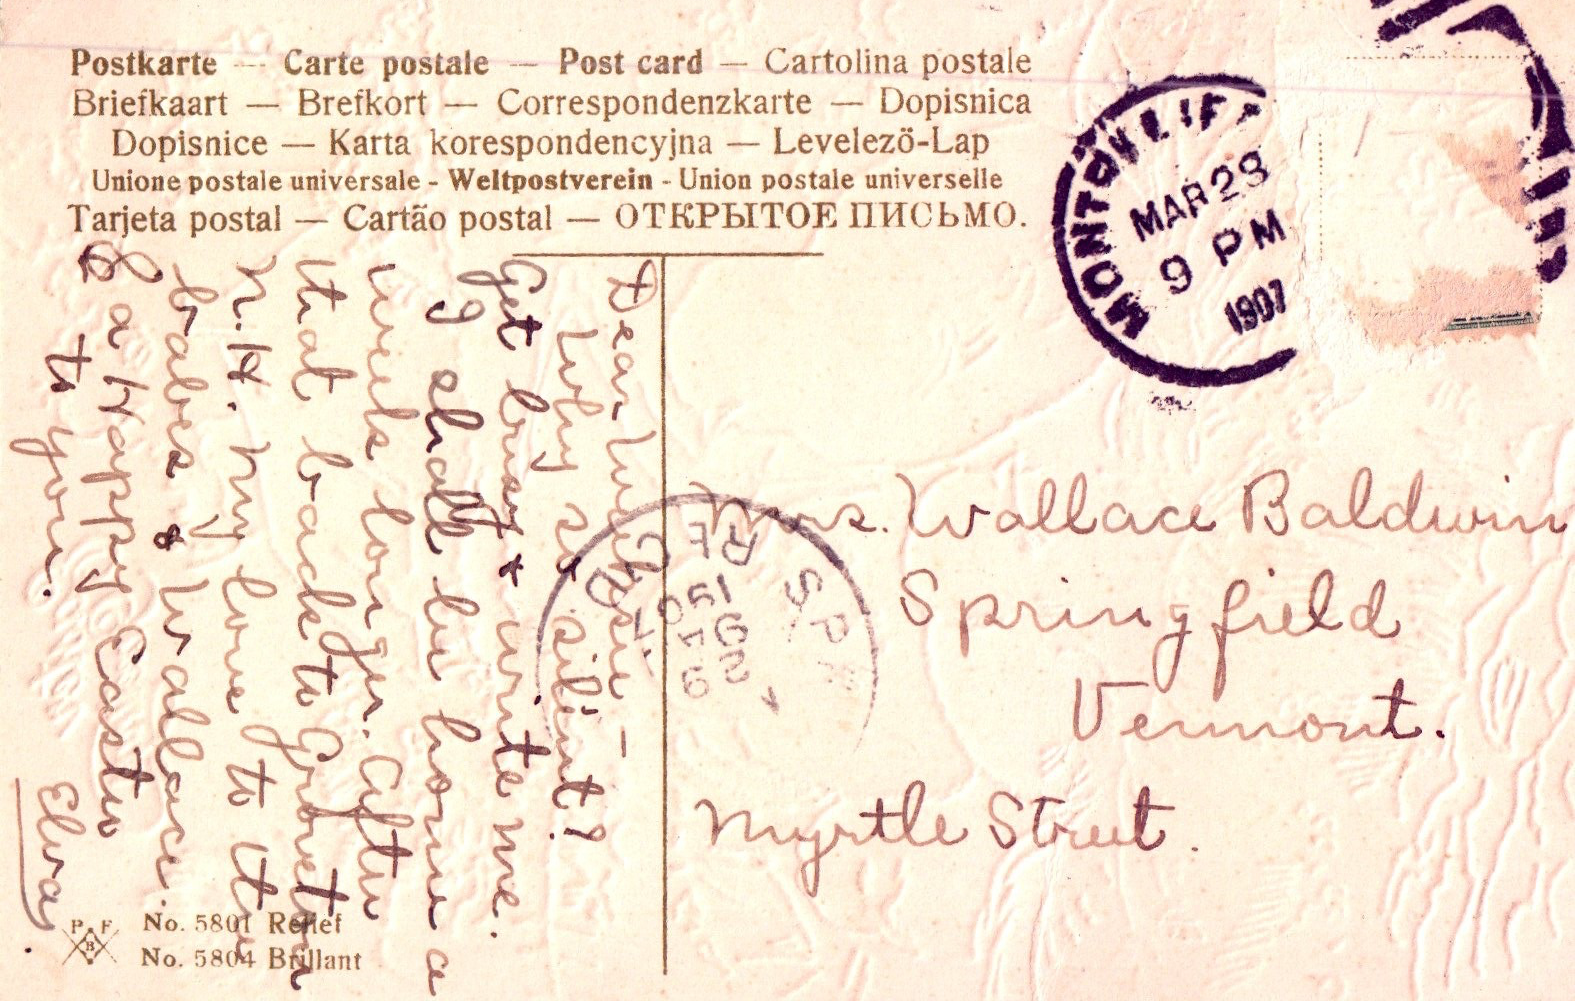 Postkarte — Carte postale — Post card — Cartolina postale
Briefkaart — Brefkort — Correspondenzkarte — Dopisnica
Dopisnice — Karta korespondencyjna — Levelezö-Lap
Unione postale universale - Weltpostverein - Union postale universelle
Tarjeta postal — Cartão postal — ОТКРЫТОЕ ПИСЬМО.
MAR 28
9 PM
1907
Dear
Why so silent?
Get busy & write me.
I shall be home a
week longer. After
that back to Groveton
N.H. My love to the
babes & Wallace.
& a Happy Easter
to you.
Elva
REC'D
1907
Mrs. Wallace Baldwin
Springfield
Vermont.
Myrtle Street.
P. F. B
No. 5801 Relief
No. 5804 Brillant